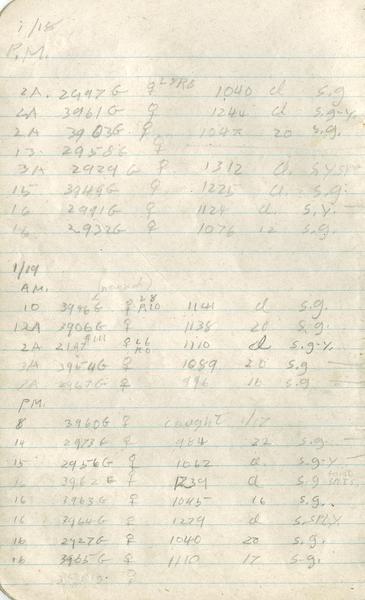 1/18
P.M.
2A. 2997G ♀ 1040 d s.g
2A 3961G ♀ 1244 d s.g-y.
2A 3903G ♀ 20 s.g.
13 2958G ♀
3A 2929G ♀ 1312 d.
15 3949G ♀ 1225 d. s.g.
16 2991G ♀ 1124 d. s.y.
16 2932G ♀ 1076 12 s.g.
1/19
A.M.
10 3996G ♀ 1141 d s.g.
12A 3906G ♀ 1138 20 s.g.
2A ♀ 1110 d s.g-y.
3A 3954G ♀ 1089 20 s.g.
2967G ♀ 996 16 s.g.
P.M.
8 3960G ♀ caught 1/17
14 2973G ♀ 984 22 s.g.
15 2956G ♀ 1062 d. s.g-y
3962G ♀ 1239 d s.g
16 3963G ♀ 1045 16 s.g.
16 3964G ♀ 1279 d
16 2927G ♀ 1040 20 s.g.
16 3965G ♀ 1110 17 s-g.
♀